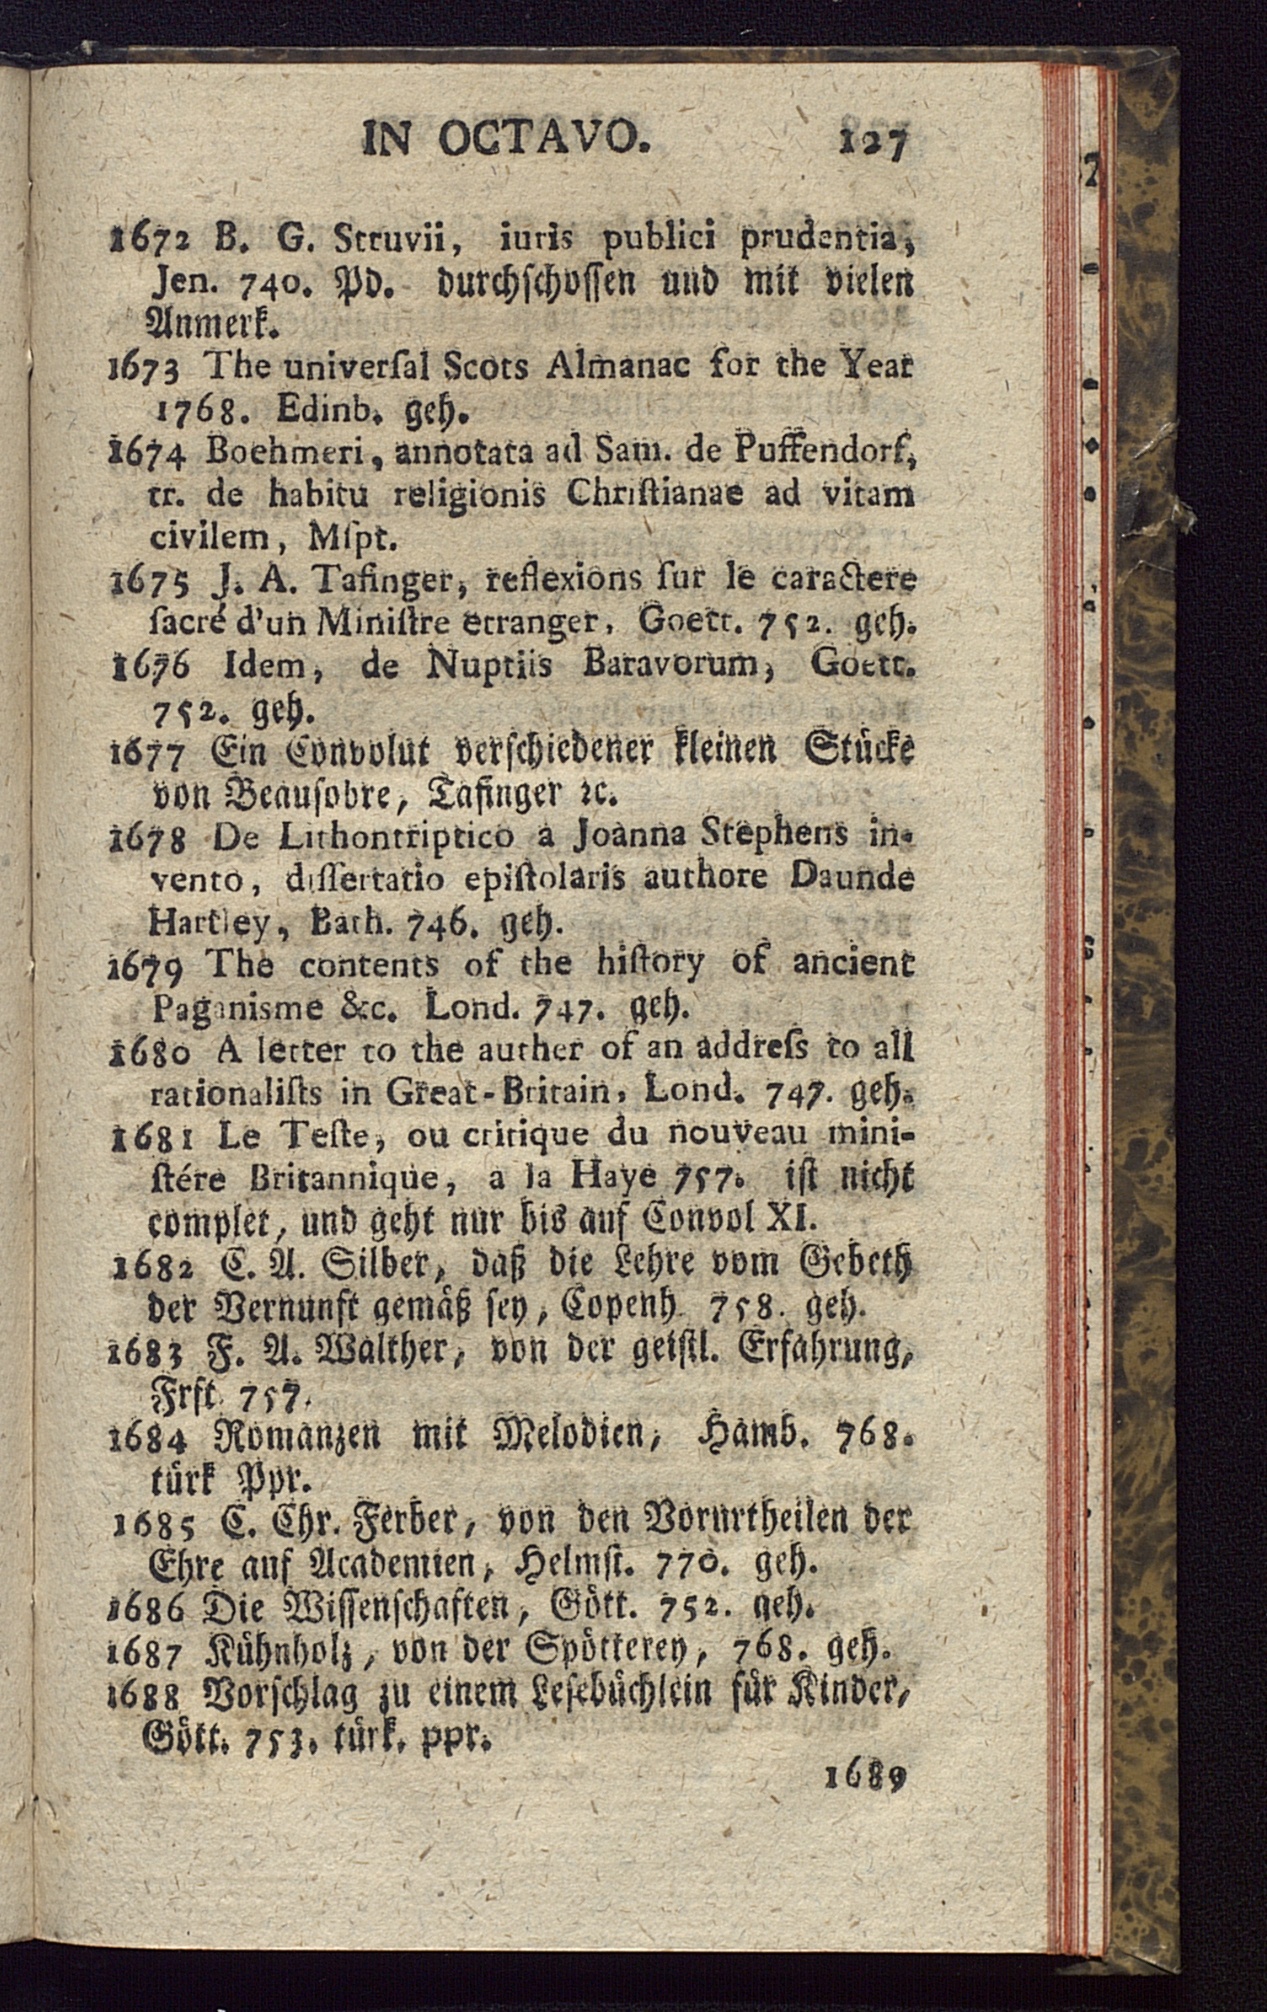 IN OCTAVO. 127
1672 B. G. Struvii, iuris publici prudentia,
Jen. 740. Pd. durchschossen und mit vielen
Anmerk.
1673 The univerſal Scots Almanac for the Year
1768. Edinb. geh.
1674 Boehmeri, annotata ad Sam. de Puffendorf,
tr. de habitu religionis Chriſtianae ad vitam
civilem, Mſpt.
1675 J. A. Tafinger, reflexions ſur le caractere
ſacré d'un Miniſtre etranger, Goett. 752. geh.
1676 Idem, de Nuptiis Batavorum, Goett.
752. geh.
1677 Ein Convolut verſchiedener kleinen Stücke
von Beauſobre, Tafinger ꝛc.
1678 De Lithontriptico a Joanna Stephens in-
vento, diſſertatio epiſtolaris authore Daunde
Hartley, Bath. 746. geh.
1679 The contents of the hiſtory of ancient
Paganisme &c. Lond. 747. geh.
1680 A letter to the auther of an addreſs to all
rationaliſts in Great-Britain, Lond. 747. geh.
1681 Le Teſte, ou critique du nouveau mini-
ſtére Britannique, a la Haye 757. iſt nicht
complet, und geht nur bis auf Convol XI.
1682 C. A. Silber, daß die Lehre vom Gebeth
der Vernunft gemäß ſey, Copenh. 758. geh.
1683 F. A. Walther, von der geiſtl. Erfahrung,
Frft. 757.
1684 Romanzen mit Melodien, Hamb. 768.
türk Ppr.
1685 C. Chr. Ferber, von den Vorurtheilen der
Ehre auf Academien, Helmſt. 770. geh.
1686 Die Wiſſenſchaften, Gött. 752. geh.
1687 Kühnholz, von der Spötterey, 768. geh.
1688 Vorſchlag zu einem Leſebüchlein für Kinder,
Gött. 753. türk. ppr.
1689